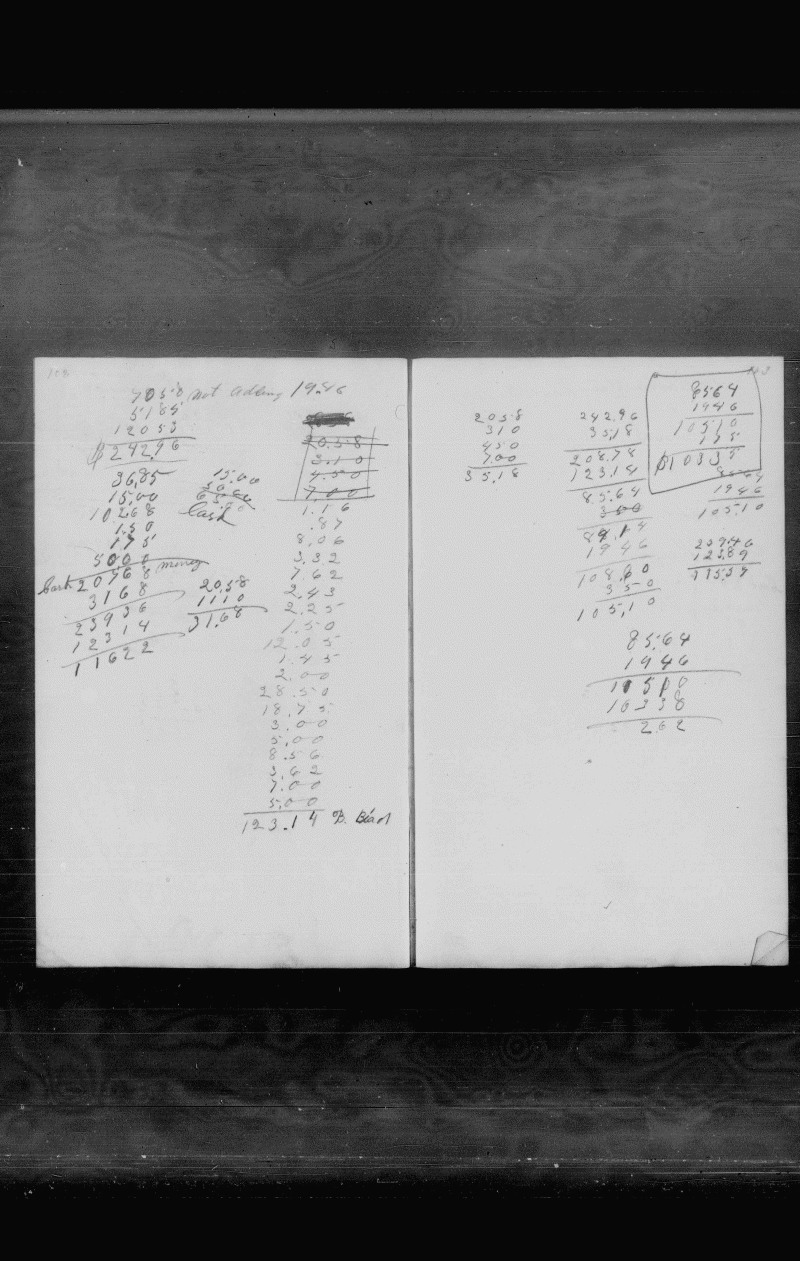 102
70 5 8 not adding 19.46
51 85
120 53
$ 242 96
36,85
15,00
102 68
1.50
1.75
50 0 0 money
Cash 207 68
31 68
239 36
123 14
116 22
15.00
Cash
20.58
11 10
31.68
20.58
3.10
4.50
7.00
1.16
.87
8.06
3.32
7.62
2.43
2.25
1.50
12.05
1.45
2.00
28.50
18.75
3.00
5.00
8.56
3.62
7.00
5.00
123.14
20 58
3 10
4 50
7.00
35,18
242,96
35,18
208,78
123 14
85.64
3 50
89,14
19 46
108 60
3 50
105,10
85 64
19 46
105 10
1 75
$103 35
85 64
19 46
105,10
239 46
123 89
115,57
85,64
19 46
105 10
102 38
2 62